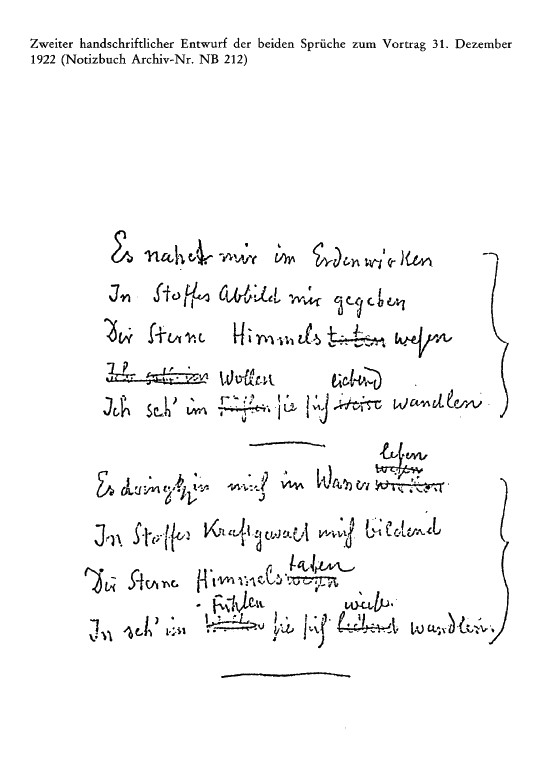 Zweiter handschriftlicher Entwurf der beiden Sprüche zum Vortrag 31. Dezember
1922 (Notizbuch Archiv-Nr. NB 212)
Es nahet mir im Erdenwirken
In Stoffes Abbild mir gegeben
Der Sterne Himmels taten wesen
Wollen liebend
Ich seh' im Fühlen sie sich weise wandlen.
leben
wesen
Es dringt in mich im Wasser wirken
In Stoffes Kraftgewalt mich bildend
taten
Der Sterne Himmels wesen
Fühlen weise.
Ich seh' im sie sich liebend wandlen.